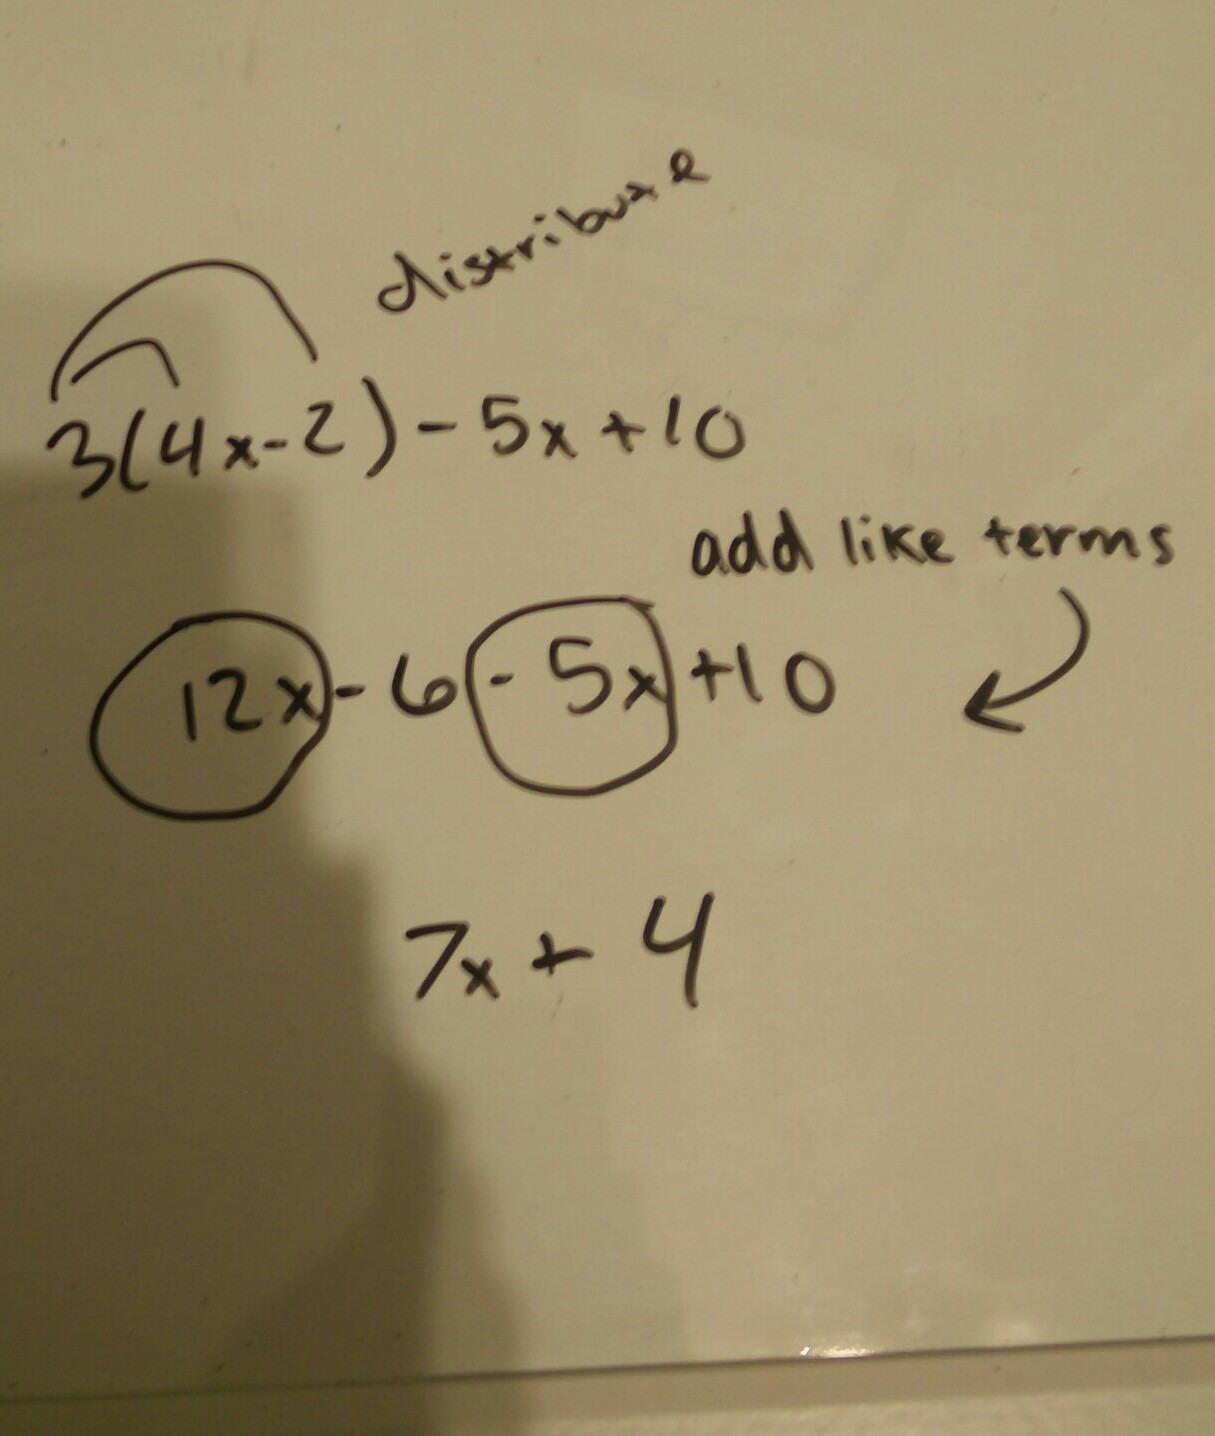 distribute
3(4x-2)-5x+10
add like terms
12x-6-5x+10
7x+4